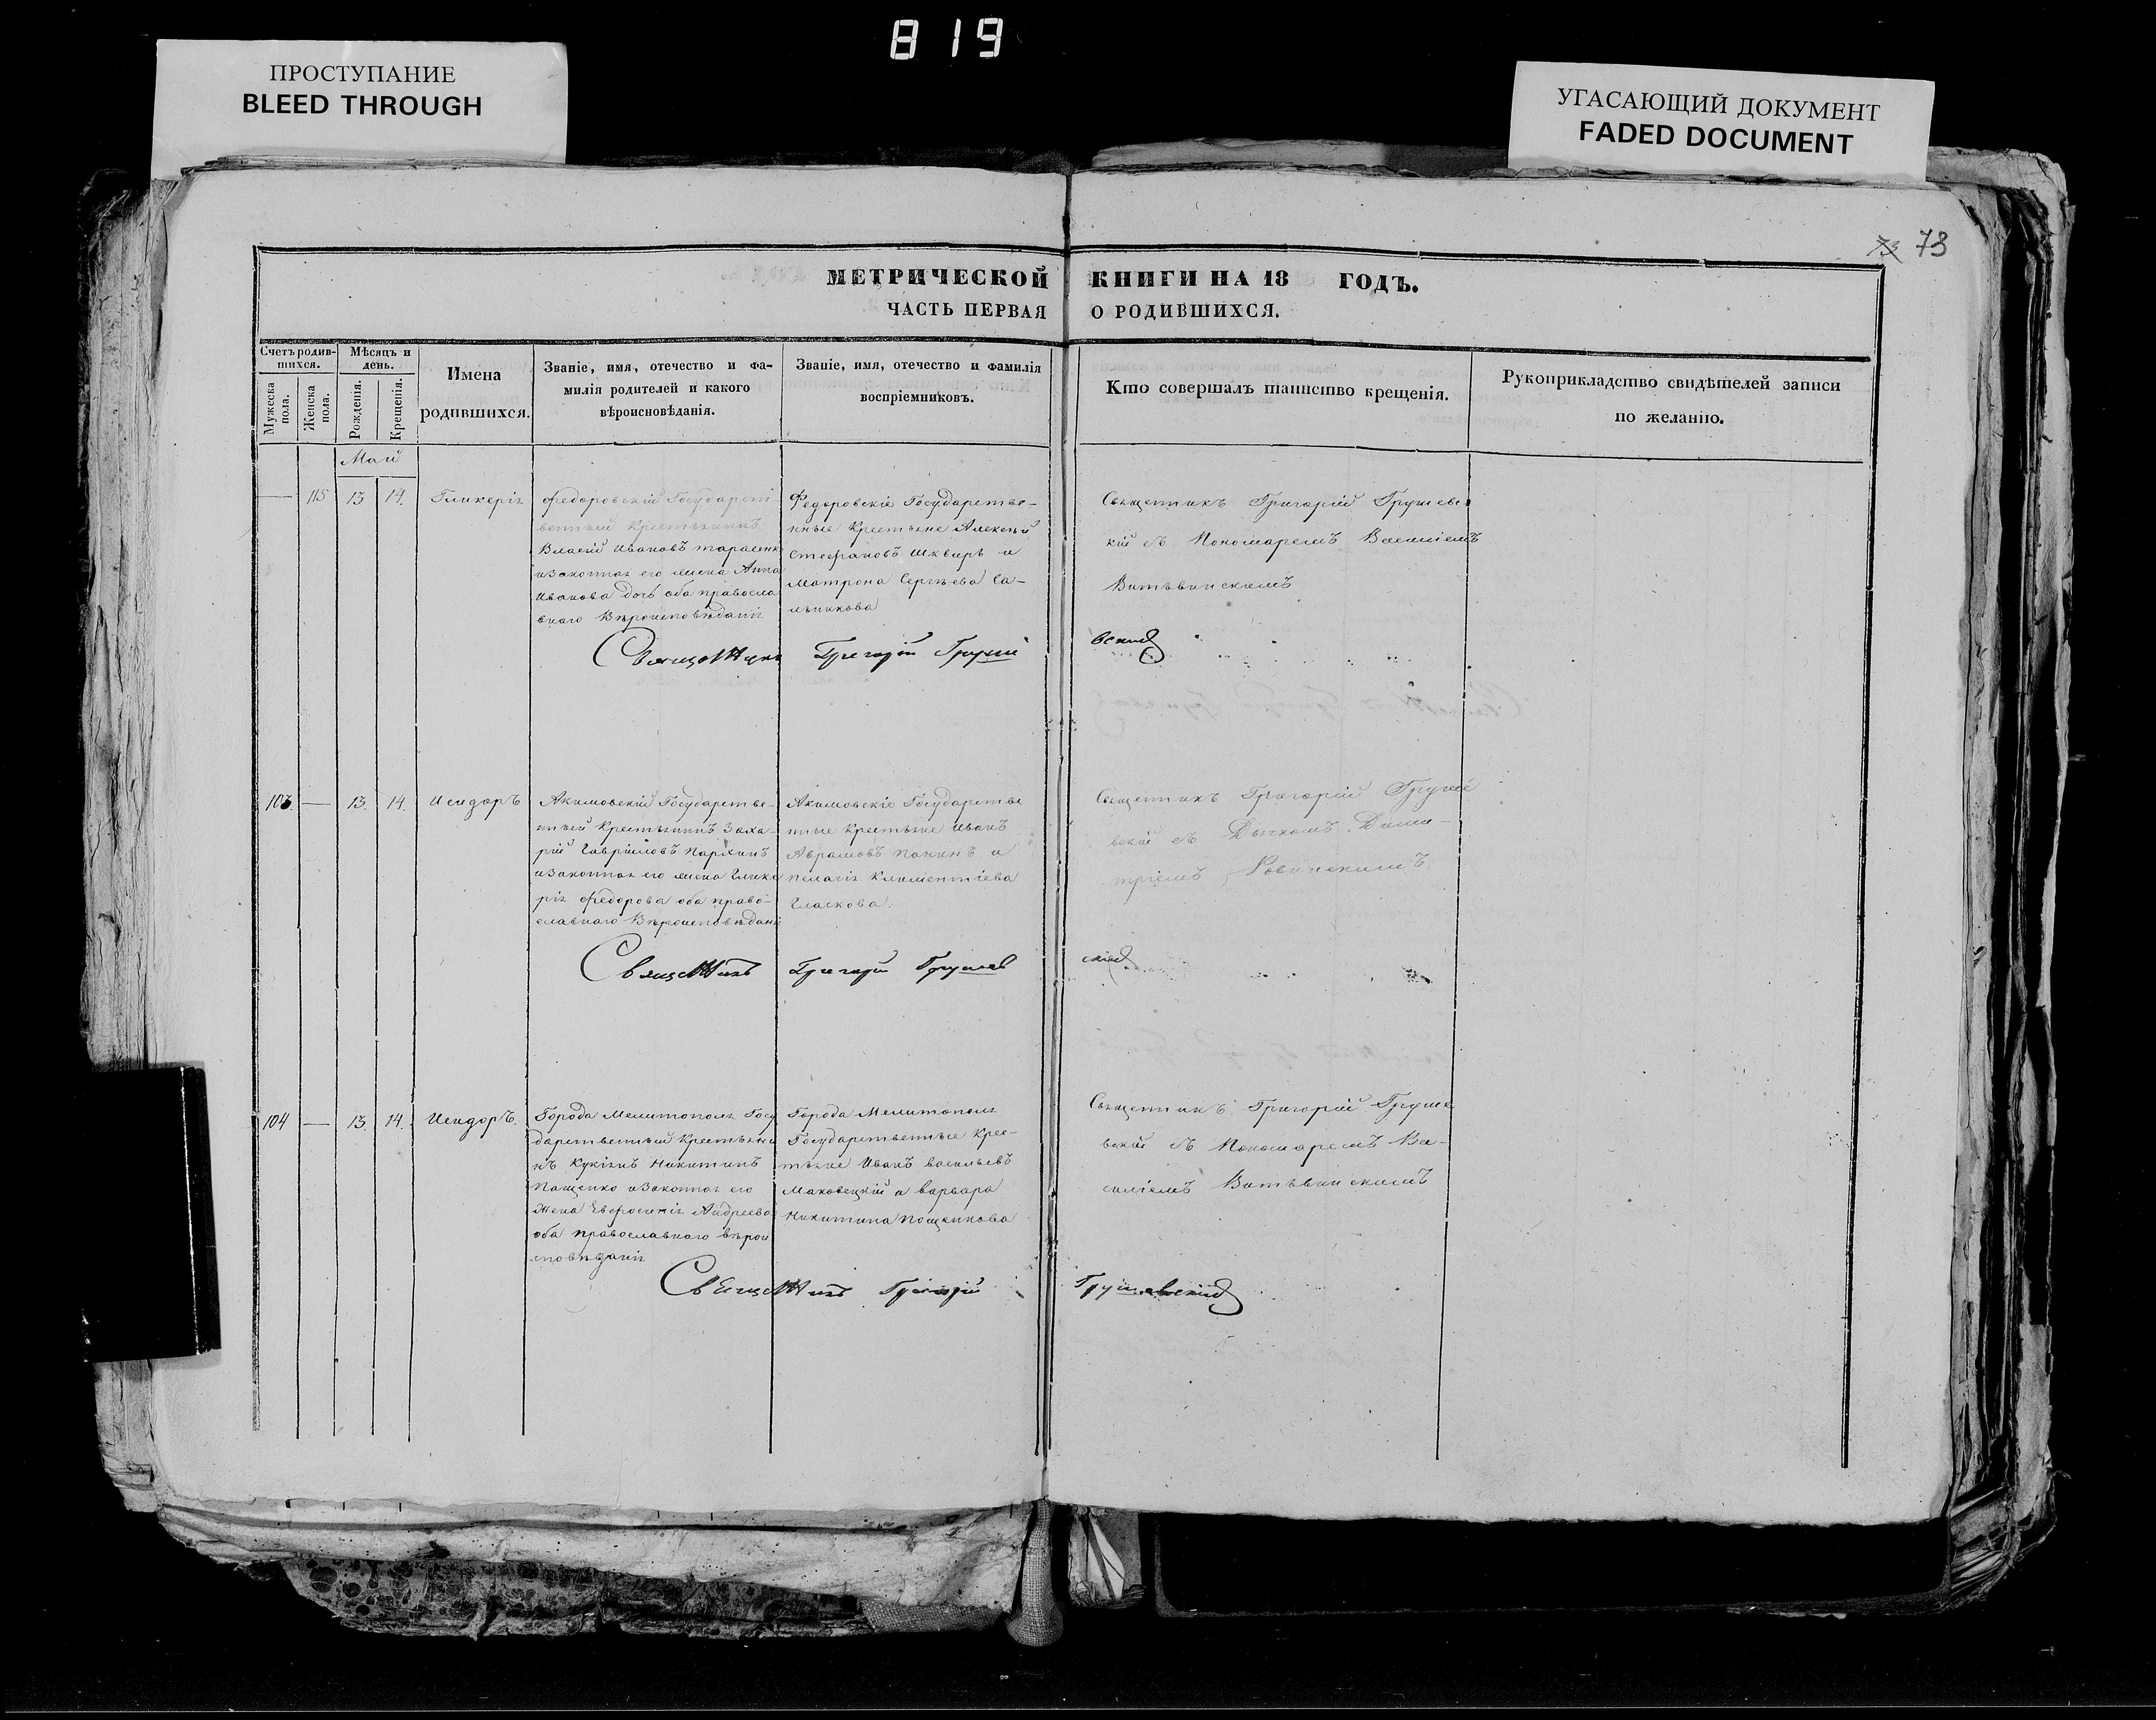 819
ПРОСТУПАНИЕ
BLEED THROUGH
УГАСАЮЩИЙ ДОКУМЕНТ
FADED DOCUMENT
73 73
МЕТРИЧЕСКОЙ КНИГИ НА 18 ГОДЪ.
ЧАСТЬ ПЕРВАЯ О РОДИВШИХСЯ.
Счетъ родив-
шихся.
Мужеска
пола.
Женска
пола.
Мѣсяцъ и
день.
Рожденія.
Крещенія.
Имена
родившихся.
Званіе, имя, отечество и фа-
милія родителей и какого
вѣроисновѣданія.
Званіе, имя, отечество и фамилія
воспріемниковъ.
Кто совершалъ таинство крещенія.
Рукоприкладство свидѣтелей записи
по желанію.
Май
— 115 13 14. Гликерія
Федоровскій Государст
венный Крестьянинъ
Власій Ивановъ Тарасенк
и Законная его жена Анна
Иванова дочь оба правосла
внаго Вѣроисповѣданія
Федоровскіе Государстве-
нные Крестьяне Алексѣй
Стефановъ Шквиръ и
Матрона Сергѣева Са-
льникова
Священникъ Григорій Грушевс
кій съ Пономаремъ Василіемъ
Витввинскимъ
Священникъ Григорій Груше
вскій
103. — 13. 14. Исидоръ
Акимовскій Государстве-
нный Крестьянинъ Заха-
рій Гавріиловъ Пархинъ
и Законная его жена Глике
рія Федорова оба право-
славнаго Вѣроисповѣдані
Акимовскіе Государстве
нные Крестьяне Иванъ
Аврамовъ Панинъ и
Пелагія Климентіева
Гласкова.
Священникъ Григорій Груше
вскій съ Дьячкомъ Дими-
тріемъ Ровинскимъ
Священникъ Григорій Грушев
скій
104 — 13. 14. Исидоръ.
Города Мелитополя Госу
дарственный Крестьяни
нъ Кукіянъ Никитинъ
Пащенко и Законная его
Жена Евфросинія Андреева
оба православнаго вѣрои
споведанія
Города Мелитополя
Государственные Крес-
тьяне Иванъ Васильевъ
Маковецкій и Варвара
Никитина Пощенкова
Священникъ Григорій Груше
вскій съ Пономаремъ Ва-
силіемъ Витввинскимъ
Священникъ Григорій Грушевскій